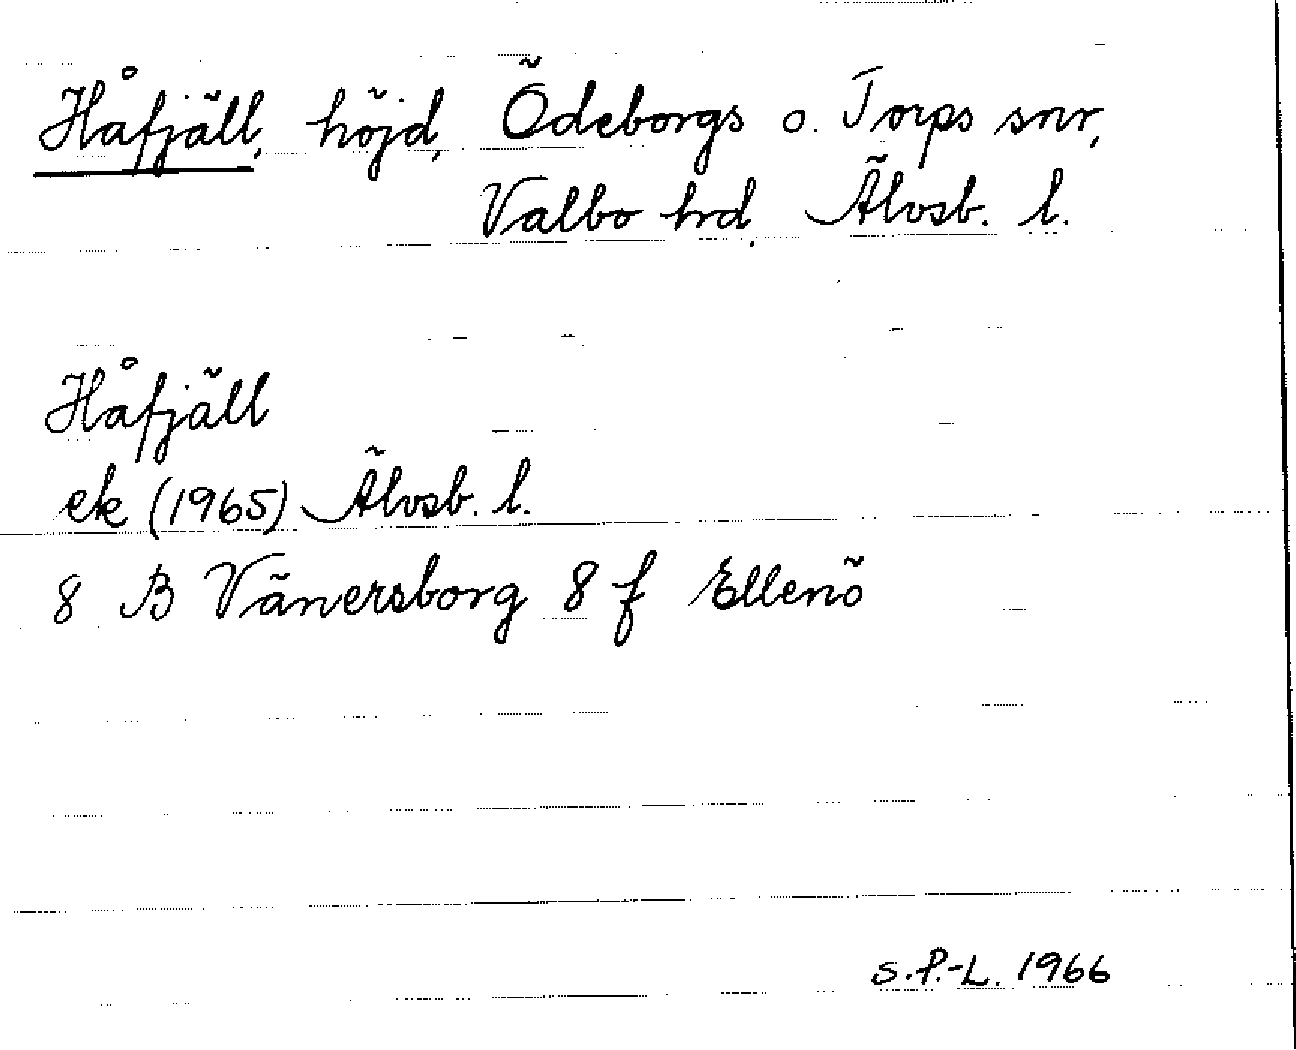 Håfjäll, höjd, Ödeborgs o. Torps snr,
Valbo hrd, Älvsb. l.
Håfjäll
ek (1965) Älvsb. l.
8 B Vänersborg 8 f Ellenö
S.P.-L. 1966